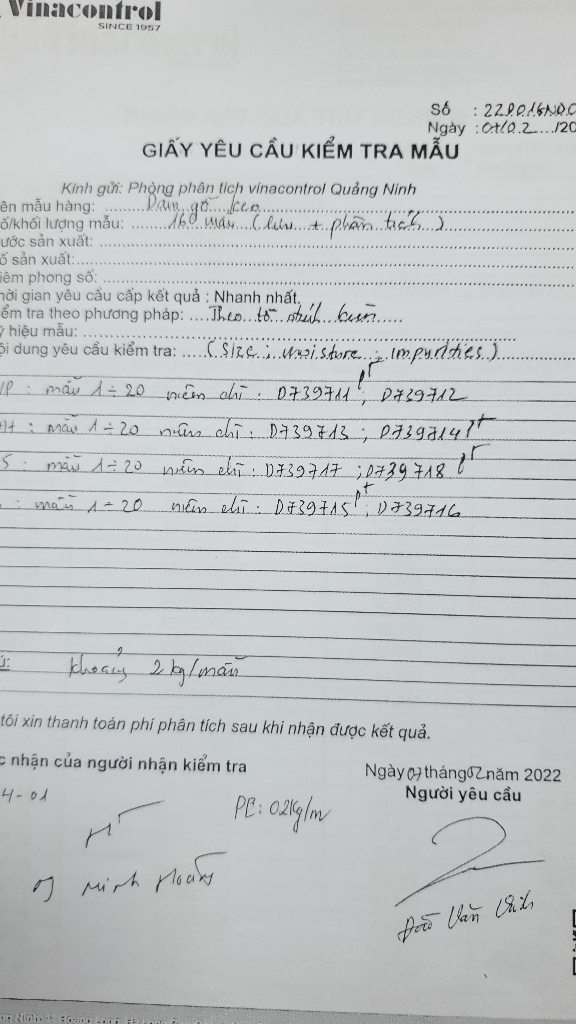 Vinacontrol
SINCE 1957
Số :
Ngày :
GIẤY YÊU CẦU KIỂM TRA MẪU
Kính gửi: Phòng phân tích vinacontrol Quảng Ninh
ên mẫu hàng: Dăm gỗ keo
ố/khối lượng mẫu: 160 mẫu (lưu + phân tích)
ước sản xuất:
ố sản xuất:
iêm phong số:
hời gian yêu cầu cấp kết quả : Nhanh nhất.
ểm tra theo phương pháp: Theo tờ
ý hiệu mẫu:
ội dung yêu cầu kiểm tra: (Size ; moisture ; impurities)
: mẫu 1÷20 niêm chì : D739711 ; D739712
: mẫu 1÷20 niêm chì : D739713 ; D739714
S : mẫu 1÷20 niêm chì : D739717 ; D739718
: mẫu 1÷20 niêm chì : D739715 ; D739716
khoảng 2 kg/mẫu
tôi xin thanh toán phí phân tích sau khi nhận được kết quả.
c nhận của người nhận kiểm tra
Ngày 07 tháng 02 năm 2022
Người yêu cầu
4-01
PC: 02kg/m
Minh Hoàng
Đào Văn